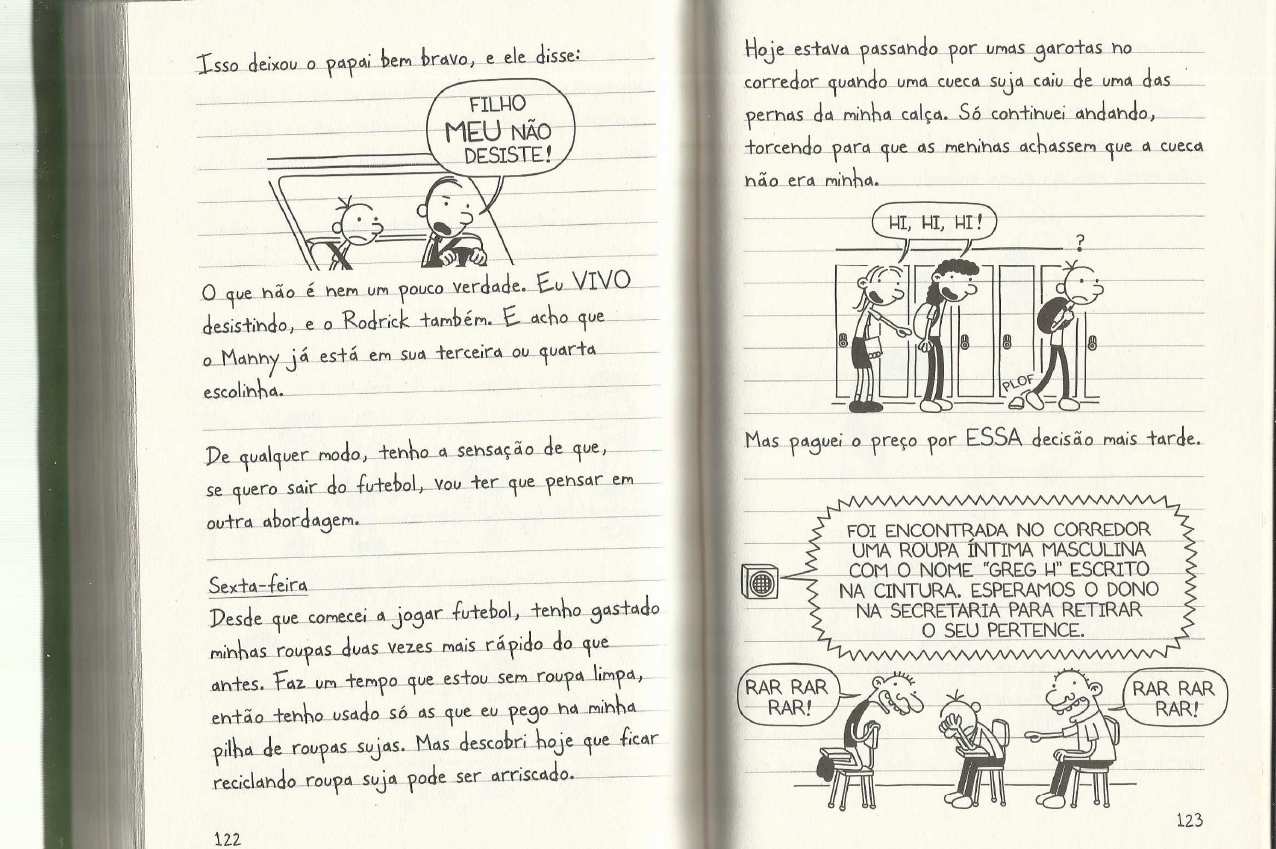 Isso deixou o papai bem bravo, e ele disse:
FILHO
MEU NÃO
DESISTE!
O que não é nem um pouco verdade. Eu VIVO
desistindo, e o Rodrick também. E acho que
o Manny já está em sua terceira ou quarta
escolinha.
De qualquer modo, tenho a sensação de que,
se quero sair do futebol, vou ter que pensar em
outra abordagem.
Sexta-feira
Desde que comecei a jogar futebol, tenho gastado
minhas roupas duas vezes mais rápido do que
antes. Faz um tempo que estou sem roupa limpa,
então tenho usado só as que eu pego na minha
pilha de roupas sujas. Mas descobri hoje que ficar
reciclando roupa suja pode ser arriscado.
122
Hoje estava passando por umas garotas no
corredor quando uma cueca suja caiu de uma das
pernas da minha calça. Só continuei andando,
torcendo para que as meninas achassem que a cueca
não era minha.
HI, HI, HI!
?
PLOF
Mas paguei o preço por ESSA decisão mais tarde.
FOI ENCONTRADA NO CORREDOR
UMA ROUPA ÍNTIMA MASCULINA
COM O NOME "GREG H" ESCRITO
NA CINTURA. ESPERAMOS O DONO
NA SECRETARIA PARA RETIRAR
O SEU PERTENCE.
RAR RAR
RAR!
RAR RAR
RAR!
123